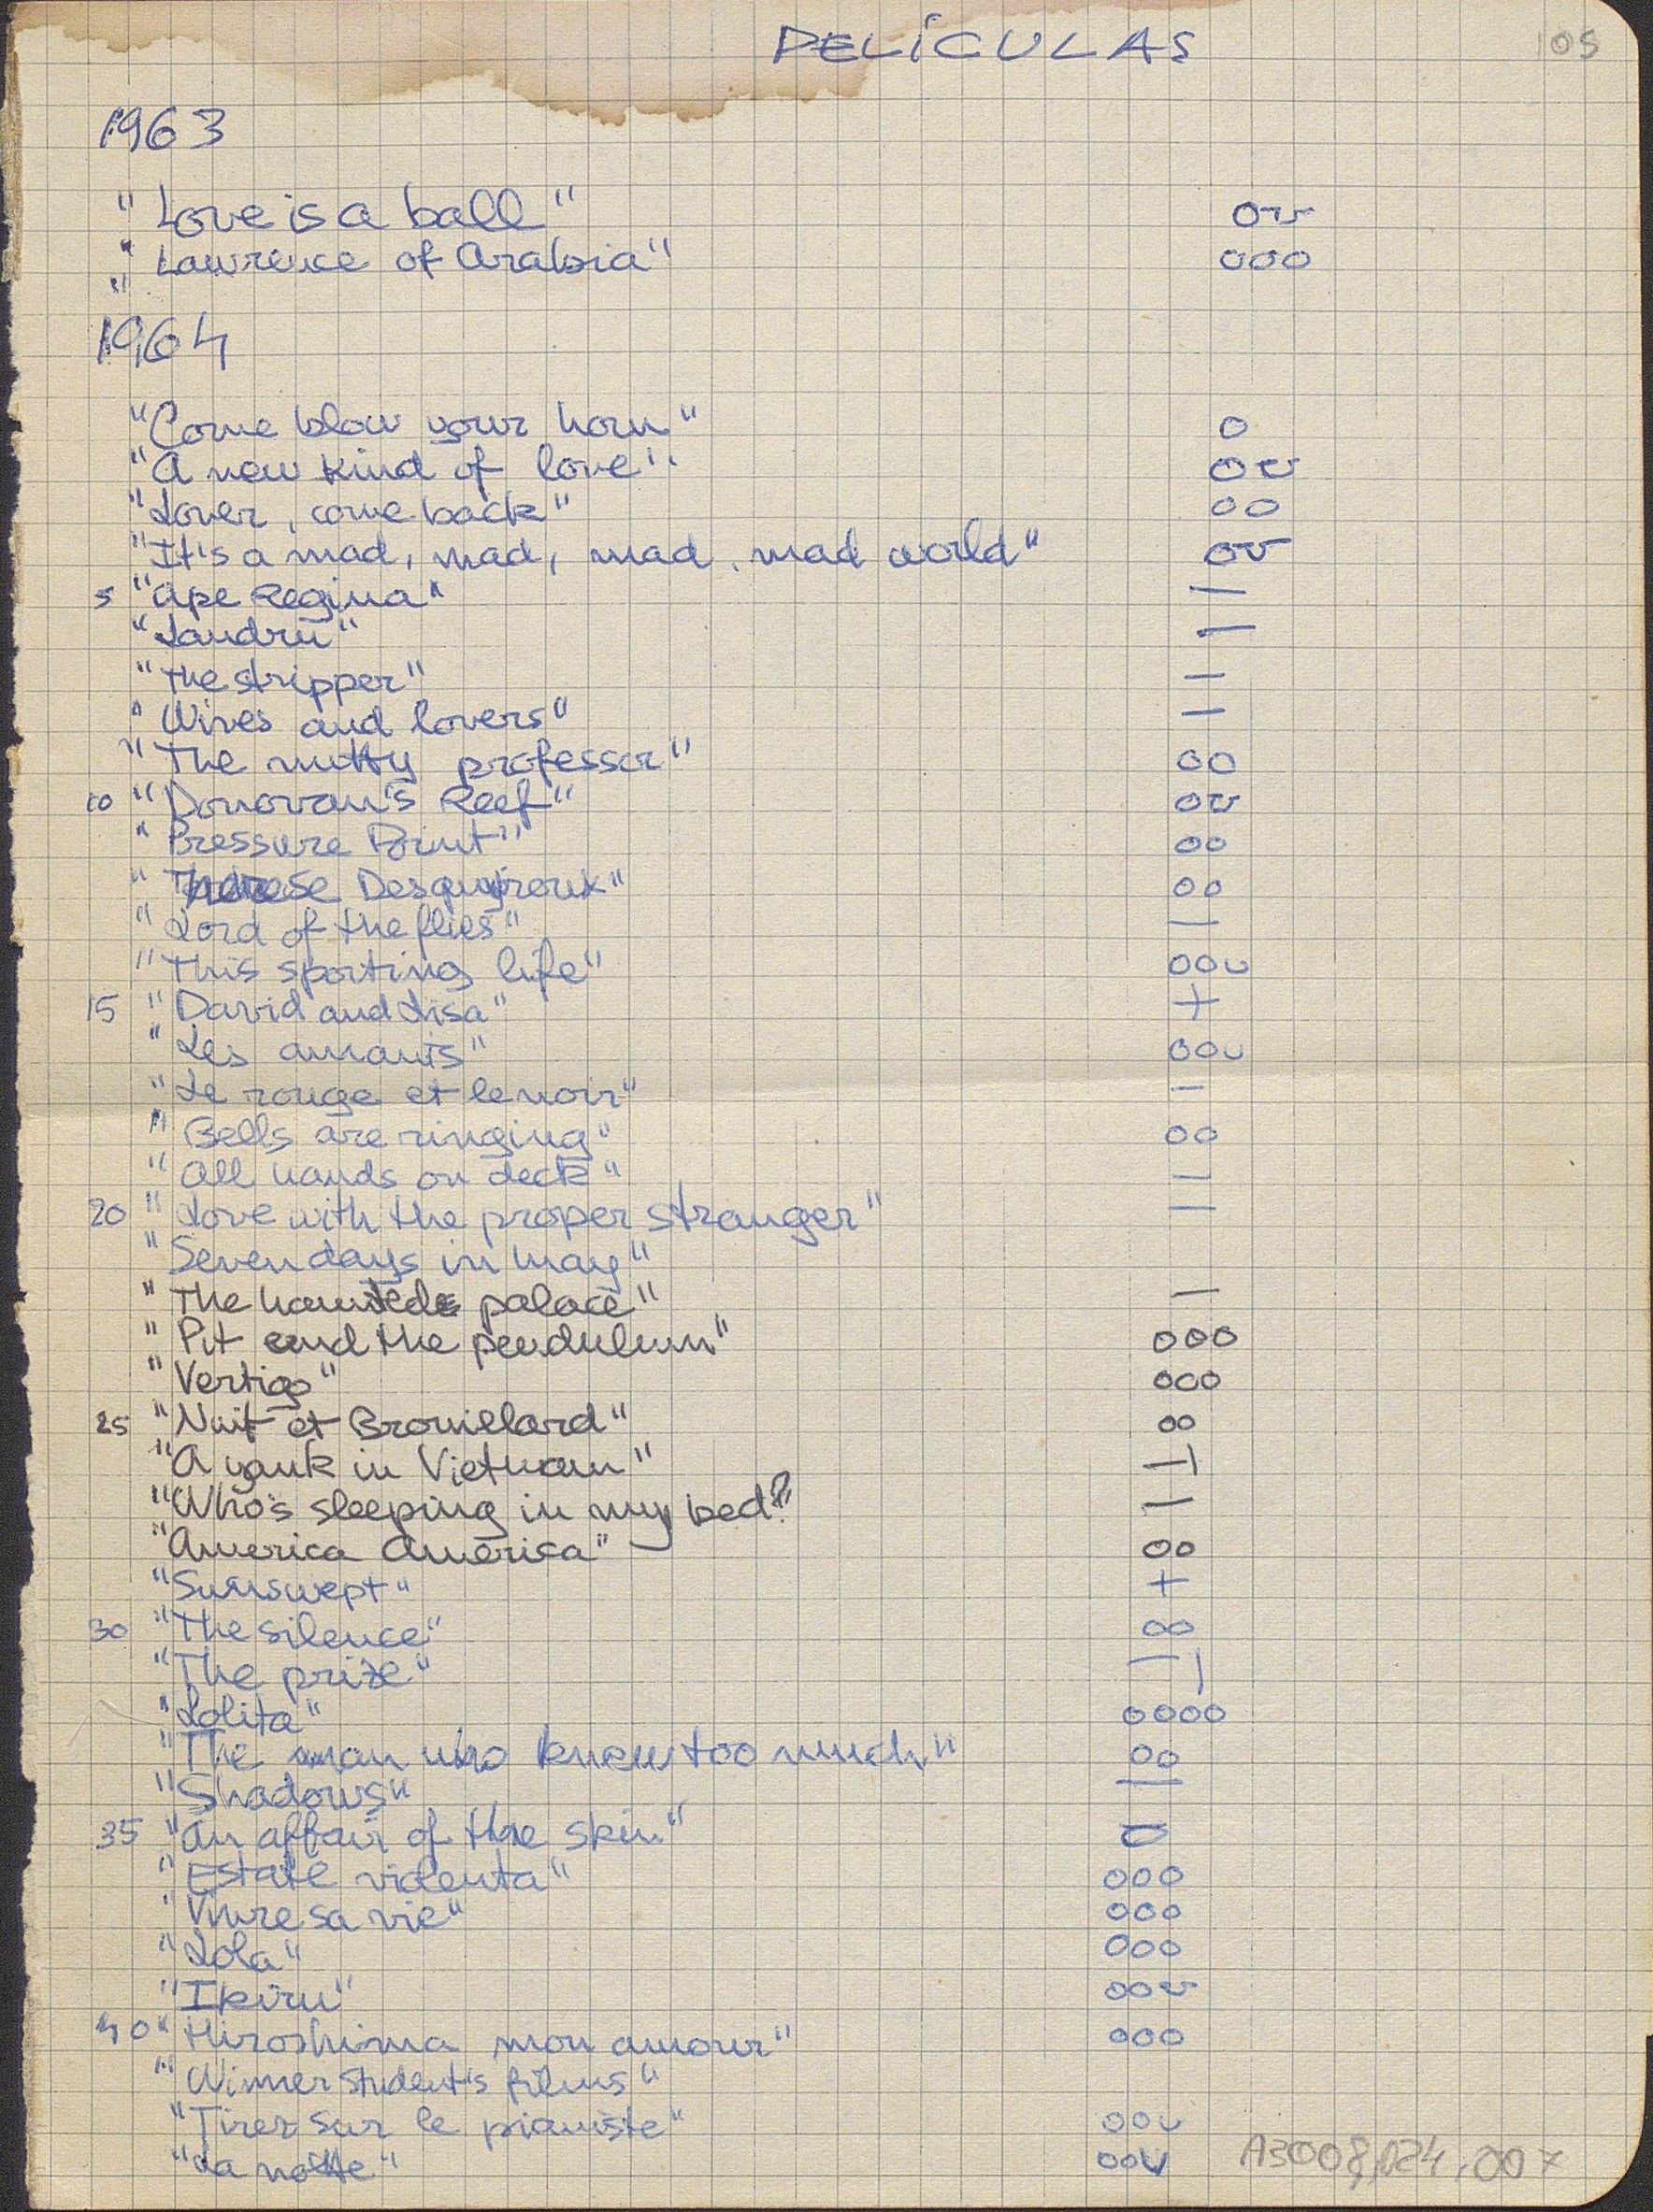 PELÍCULAS 105
1963
"Love is a ball" ov
"Lawrence of Arabia" ooo
"
1964
"Come blow your horn" o
"A new kind of love" ov
"Lover, come back" oo
"It's a mad, mad, mad, mad world" ov
5 "Ape Regina" —
"Landru" —
"The stripper" —
"Wives and lovers" —
"The nutty professor" oo
10 "Donovan's Reef" ov
"Pressure Point" oo
"Therese Desqueyroux" oo
"Lord of the flies" —
"This sporting life" oou
15 "David and Lisa" +
"Les amants" oou
"Le rouge et le noir" —
"Bells are ringing" oo
"All hands on deck" —
20 "Love with the proper stranger" —
"Seven days in May"
"The haunted palace" —
"Pit and the pendulum" ooo
"Vertigo" ooo
25 "Nuit et Brouillard" oo
"A yank in Vietnam" —|
"Who's sleeping in my bed?" —
"America America" oo
"Sunswept" +
30 "The silence" oo
"The prize" —|
"Lolita" oooo
"The man who knew too much" oo
"Shadows" —
35 "An affair of the skin" o
"Estate violenta" ooo
"Vivre sa vie" ooo
"Lola" ooo
"Ikiru" oov
40 "Hiroshima mon amour" ooo
"Winner student's films"
"Tirez sur le pianiste" oou
"La notte" oov A3008,024,007